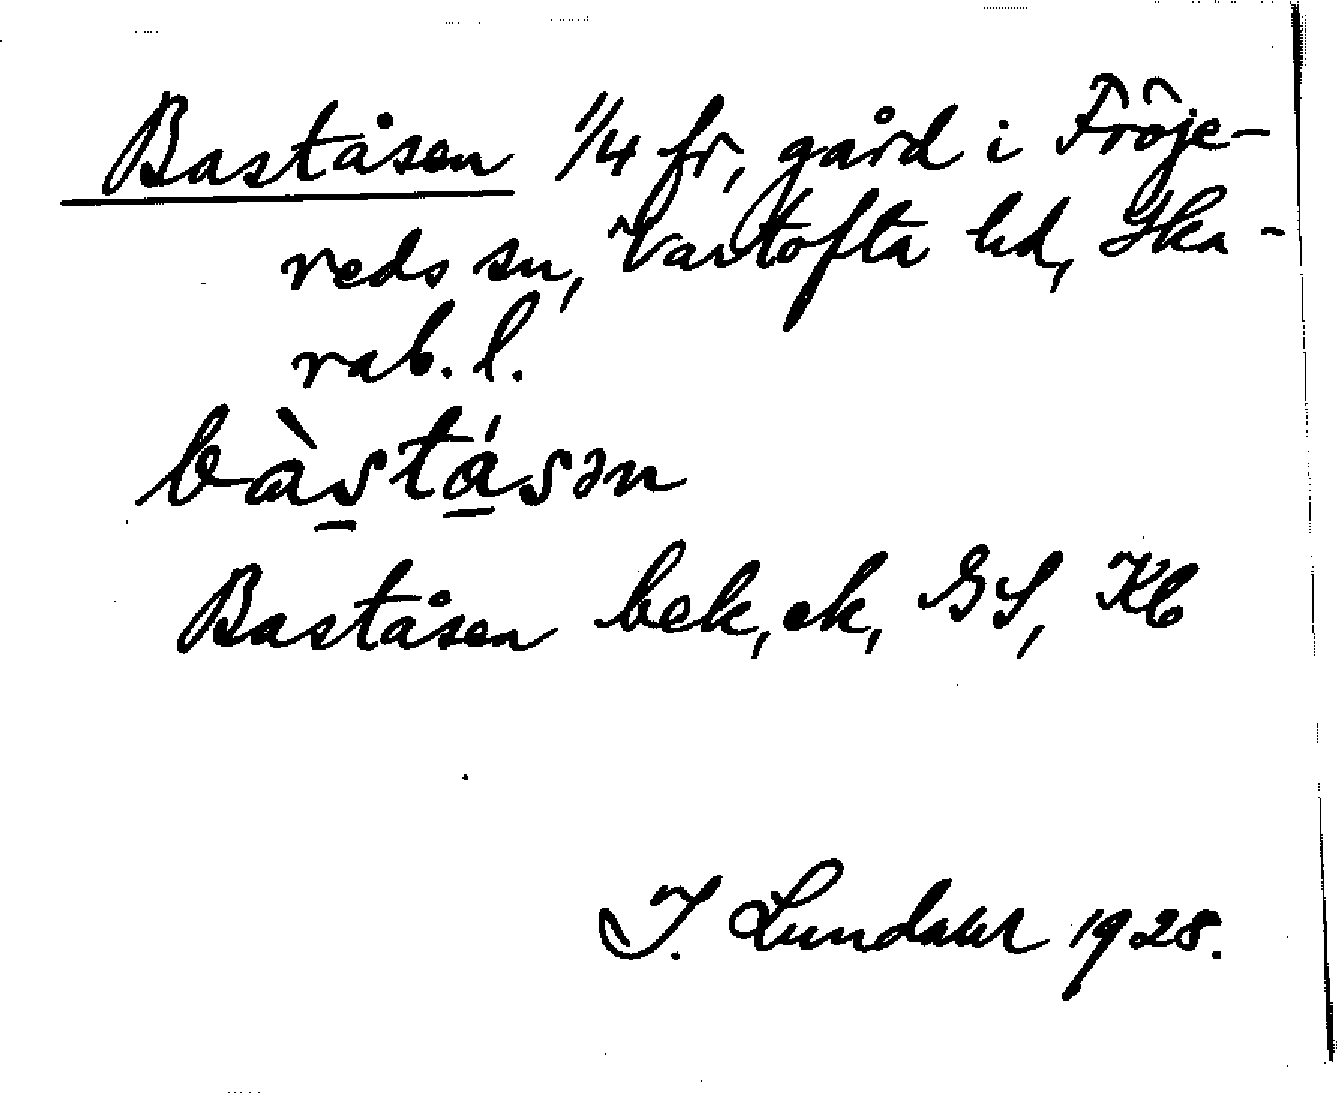 Baståsen 1/4 fr, gård i Fröje-
reds sn, Vartofta hd, Ska-
rab. l.
bàstásən
Baståsen bek, ek, GS, Kb
I. Lundahl 1928.